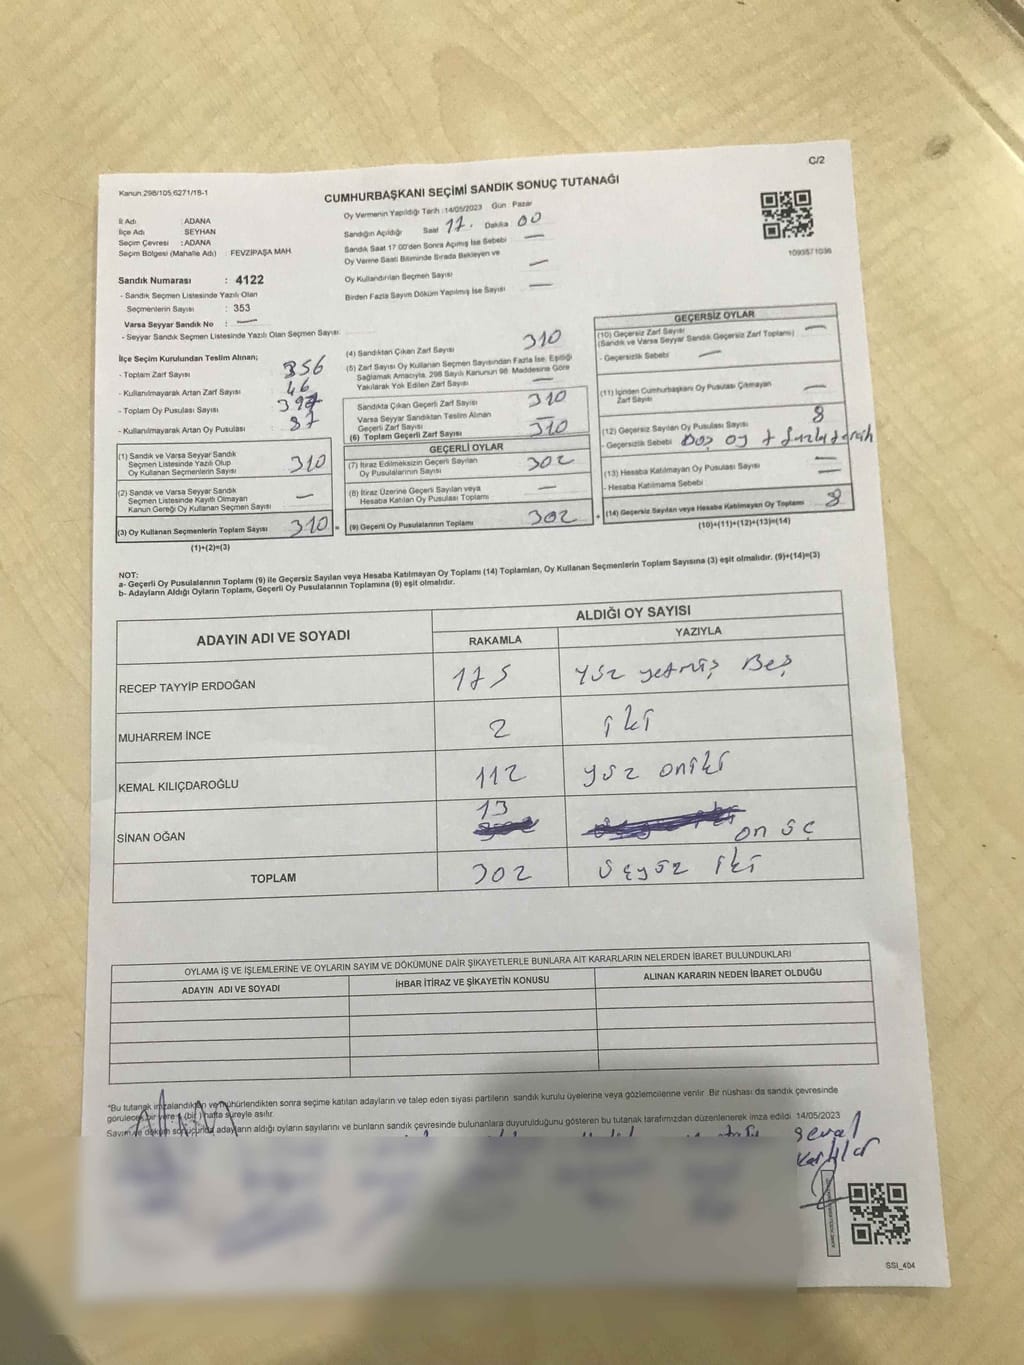 C/2
Kanun 298/105 6271/18-1
CUMHURBAŞKANI SEÇİMİ SANDIK SONUÇ TUTANAĞI
İl Adı : ADANA
İlçe Adı : SEYHAN
Seçim Çevresi : ADANA
Seçim Bölgesi (Mahalle Adı) : FEVZİPAŞA MAH.
Oy Vermenin Yapıldığı Tarih : 14/05/2023 Gün : Pazar
Sandığın Açıldığı Saat 17. Dakika 00
Sandık Saat 17 00'den Sonra Açılmış İse Sebebi —
Oy Verme Saati Bitiminde Sırada Bekleyen ve
Oy Kullandırılan Seçmen Sayısı —
Birden Fazla Sayım Döküm Yapılmış İse Sayısı —
1093571036
Sandık Numarası : 4122
- Sandık Seçmen Listesinde Yazılı Olan
Seçmenlerin Sayısı : 353
Varsa Seyyar Sandık No : —
- Seyyar Sandık Seçmen Listesinde Yazılı Olan Seçmen Sayısı:
İlçe Seçim Kurulundan Teslim Alınan;
- Toplam Zarf Sayısı : 356
- Kullanılmayarak Artan Zarf Sayısı : 46
- Toplam Oy Pusulası Sayısı : 397
- Kullanılmayarak Artan Oy Pusulası : 87
(1) Sandık ve Varsa Seyyar Sandık
Seçmen Listesinde Yazılı Olup
Oy Kullanan Seçmenlerin Sayısı 310
(2) Sandık ve Varsa Seyyar Sandık
Seçmen Listesinde Kayıtlı Olmayan
Kanun Gereği Oy Kullanan Seçmen Sayısı —
(3) Oy Kullanan Seçmenlerin Toplam Sayısı 310 =
(1)+(2)=(3)
(4) Sandıktan Çıkan Zarf Sayısı 310
(5) Zarf Sayısı Oy Kullanan Seçmen Sayısından Fazla İse, Eşitliği
Sağlamak Amacıyla, 298 Sayılı Kanunun 98. Maddesine Göre
Yakılarak Yok Edilen Zarf Sayısı —
Sandıkta Çıkan Geçerli Zarf Sayısı 310
Varsa Seyyar Sandıktan Teslim Alınan
Geçerli Zarf Sayısı —
(6) Toplam Geçerli Zarf Sayısı 310
GEÇERLİ OYLAR
(7) İtiraz Edilmeksizin Geçerli Sayılan
Oy Pusulalarının Sayısı 302
(8) İtiraz Üzerine Geçerli Sayılan veya
Hesaba Katılan Oy Pusulası Toplamı —
(9) Geçerli Oy Pusulalarının Toplamı 302 +
GEÇERSİZ OYLAR
(10) Geçersiz Zarf Sayısı
(Sandık ve Varsa Seyyar Sandık Geçersiz Zarf Toplamı) —
- Geçersizlik Sebebi —
(11) İçinden Cumhurbaşkanı Oy Pusulası Çıkmayan
Zarf Sayısı —
(12) Geçersiz Sayılan Oy Pusulası Sayısı 8
- Geçersizlik Sebebi Boş oy + fazla tercih
(13) Hesaba Katılmayan Oy Pusulası Sayısı —
- Hesaba Katılmama Sebebi —
(14) Geçersiz Sayılan veya Hesaba Katılmayan Oy Toplamı 8
(10)+(11)+(12)+(13)=(14)
NOT:
a- Geçerli Oy Pusulalarının Toplamı (9) ile Geçersiz Sayılan veya Hesaba Katılmayan Oy Toplamı (14) Toplamları, Oy Kullanan Seçmenlerin Toplam Sayısına (3) eşit olmalıdır. (9)+(14)=(3)
b- Adayların Aldığı Oyların Toplamı, Geçerli Oy Pusulalarının Toplamına (9) eşit olmalıdır.
ADAYIN ADI VE SOYADI ALDIĞI OY SAYISI
RAKAMLA YAZIYLA
RECEP TAYYİP ERDOĞAN 175 yüz yetmiş Beş
MUHARREM İNCE 2 iki
KEMAL KILIÇDAROĞLU 112 yüz oniki
SİNAN OĞAN 13 on üç
TOPLAM 302 üçyüz iki
OYLAMA İŞ VE İŞLEMLERİNE VE OYLARIN SAYIM VE DÖKÜMÜNE DAİR ŞİKAYETLERLE BUNLARA AİT KARARLARIN NELERDEN İBARET BULUNDUKLARI
ADAYIN ADI VE SOYADI İHBAR İTİRAZ VE ŞİKAYETİN KONUSU ALINAN KARARIN NEDEN İBARET OLDUĞU
*Bu tutanak imzalandıktan ve mühürlendikten sonra seçime katılan adayların ve talep eden siyasi partilerin sandık kurulu üyelerine veya gözlemcilerine verilir. Bir nüshası da sandık çevresinde
görülecek bir yere 1 (bir) hafta süreyle asılır.
Sayım ve döküm sonucunda adayların aldığı oyların sayılarını ve bunların sandık çevresinde bulunanlara duyurulduğunu gösteren bu tutanak tarafımızdan düzenlenerek imza edildi. 14/05/2023
SSI_404